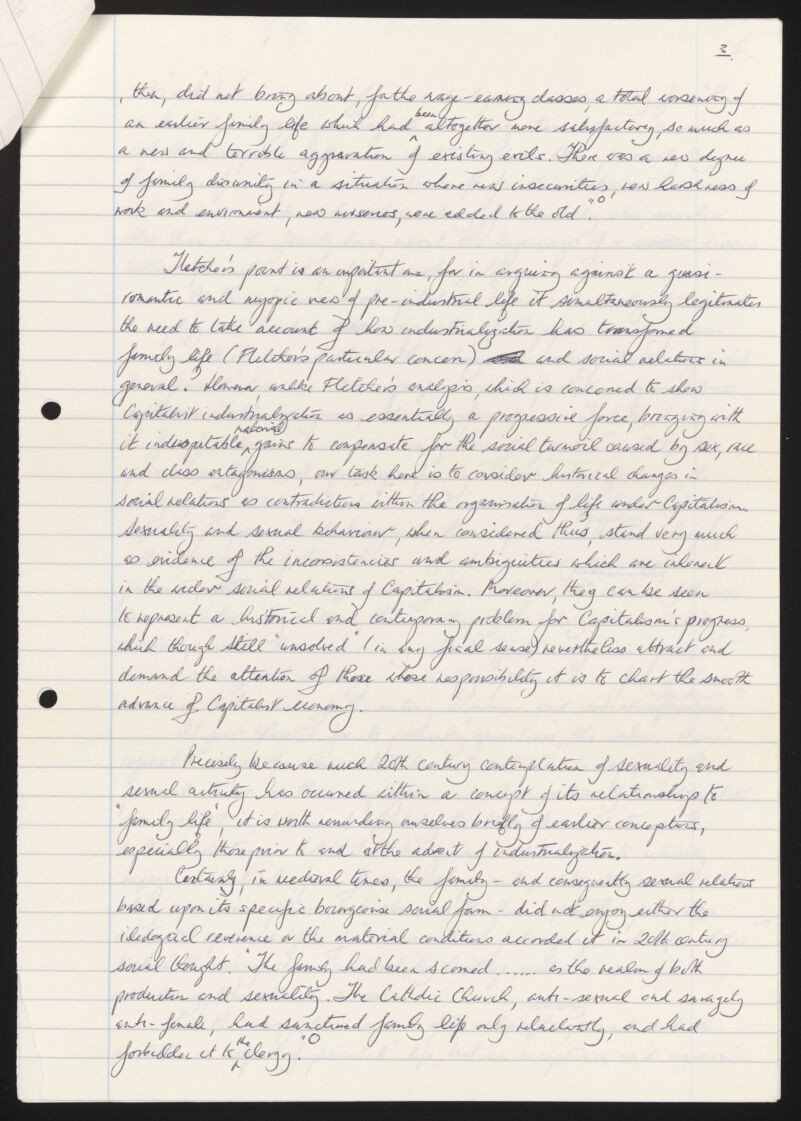 3.
, then, did not bring about, for the wage-earning classes, a total worsening of
an earlier family life which had been altogether more satisfactory, so much as
a new and terrible aggravation of existing evils. There was a new degree
of family disunity in a situation where new insecurities, new harshness of
work and environment, new miseries, were added to the old".O
Fletcher's point is an important one, for in arguing against a quasi-
romantic and myopic view of pre-industrial life it simultaneously legitimates
the need to take account of how industrialization has transformed
family life (Fletcher's particular concern) and social relations in
general. However, unlike Fletcher's analysis, which is concerned to show
Capitalist industrialization as essentially a progressive force, bringing with
it indisputable material gains to compensate for the social turmoil caused by sex, race
and class antagonisms, our task here is to consider historical changes in
social relations as contradictions within the organisation of life under Capitalism.
Sexuality and sexual behaviour, when considered thus, stand very much
as evidence of the inconsistencies and ambiguities which are inherent
in the wider social relations of Capitalism. Moreover, they can be seen
to represent a historical and contemporary problem for Capitalism's progress,
which though still "unsolved" (in any final sense) nevertheless attract and
demand the attention of those whose responsibility it is to chart the smooth
advance of Capitalist economy.
Precisely because much 20th century contemplation of sexuality and
sexual activity has occurred within a concept of its relationships to
"family life", it is worth reminding ourselves briefly of earlier conceptions,
especially those prior to and at the advent of industrialization.
Certainly, in medieval times, the family - and consequently sexual relations
based upon its specific bourgeoise social form - did not enjoy either the
ideological reverence or the material conditions accorded it in 20th century
social thought. "The family had been scorned ...... as the realm of both
production and sexuality. The Catholic Church, anti-sexual and savagely
anti-female, had sanctioned family life only reluctantly, and had
forbidden it to the clergy."O